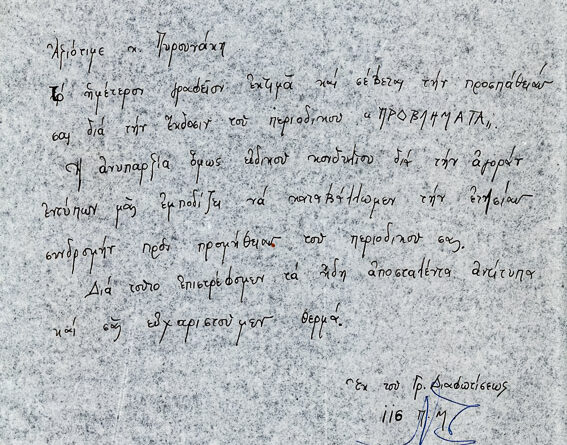 Ἀξιότιμε κ. Πυρουνάκη
Τό ἡμέτερον γραφεῖον ἐκτιμᾶ καί σέβεται τήν προσπάθειάν
σας διά τήν ἔκδοσιν τοῦ περιοδικοῦ "ΠΡΟΒΛΗΜΑΤΑ".
Ἡ ἀνυπαρξία ὅμως εἰδικοῦ κονδυλίου διά τήν ἀγοράν
ἐντύπων μᾶς ἐμποδίζει νά καταβάλλωμεν τήν ἐτησίαν
συνδρομήν πρός προμήθειαν τοῦ περιοδικοῦ σας.
Διά τοῦτο ἐπιστρέφομεν τά ἤδη ἀποσταλέντα ἀνάτυπα
καί σᾶς εὐχαριστοῦμεν θερμά.
Ἐκ τοῦ Γρ. Διαφωτίσεως
116 Π.Μ